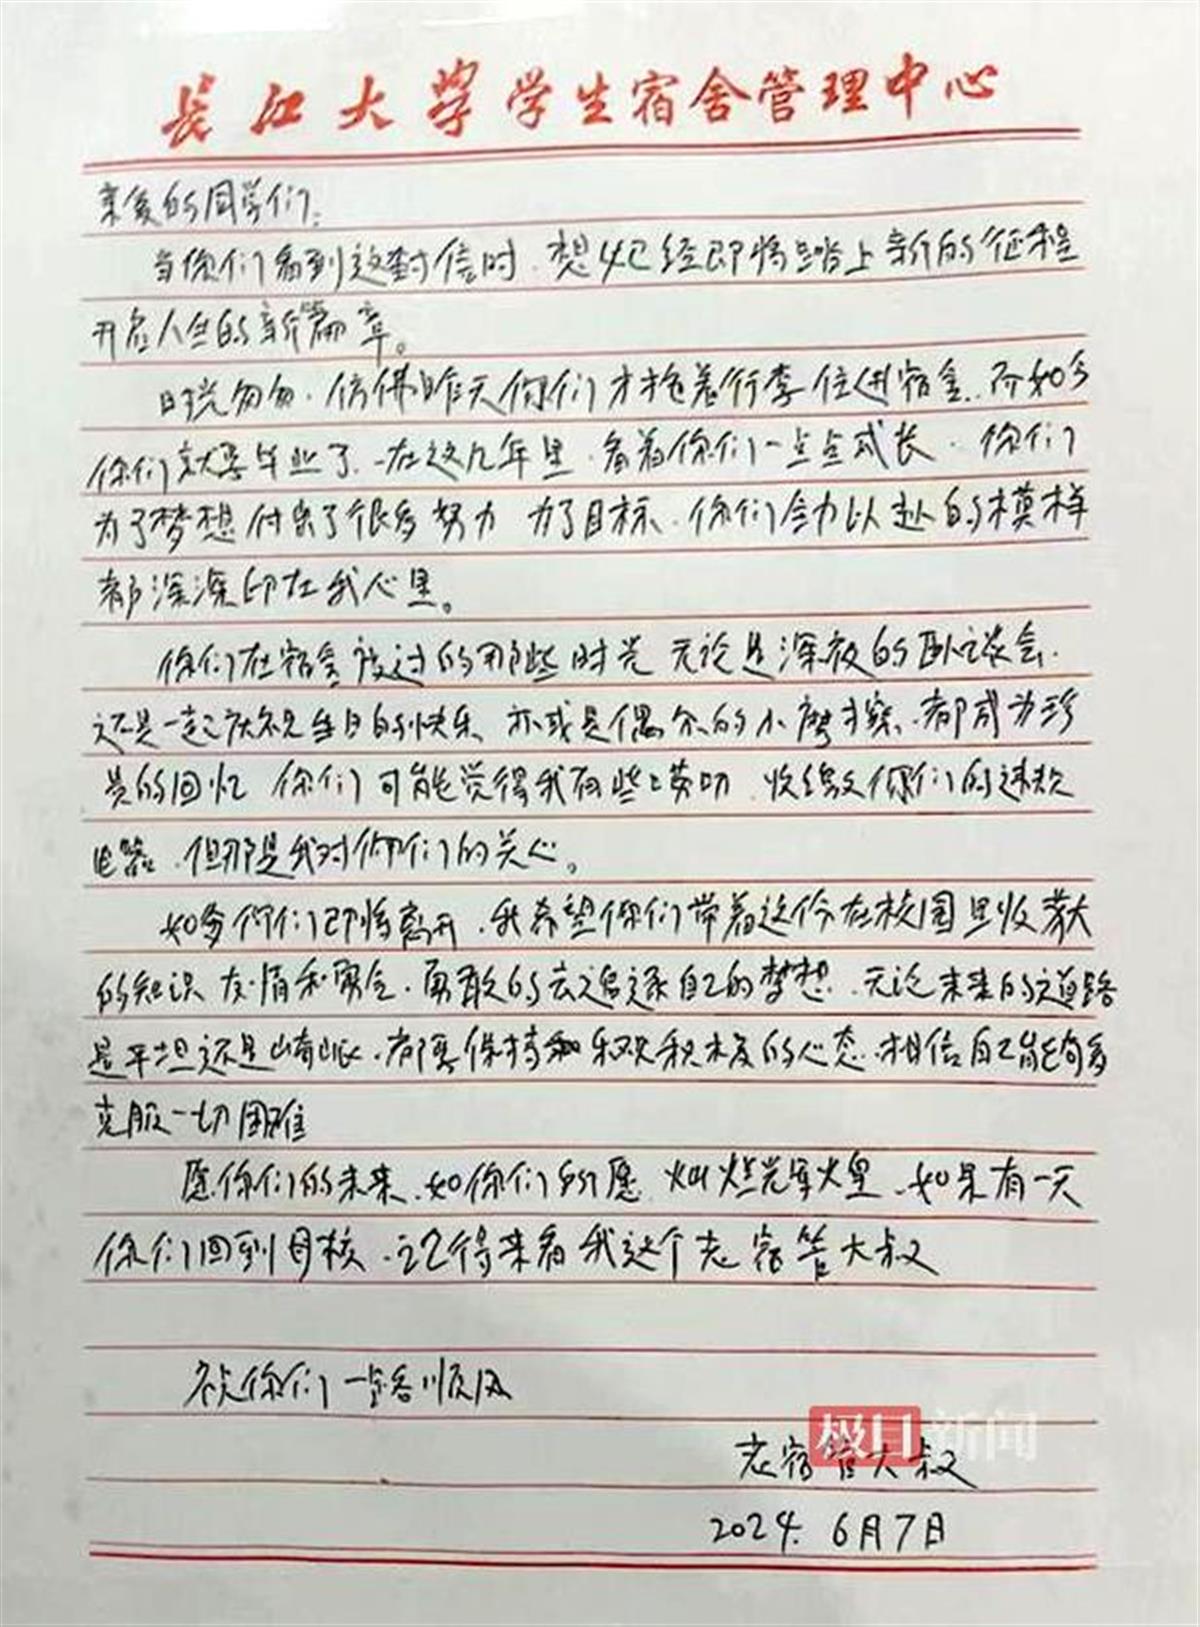 长江大学学生宿舍管理中心
亲爱的同学们:
当你们看到这封信时.想必已经即将踏上新的征程
开启人生的新篇章。
时光匆匆.仿佛昨天你们才拖着行李住进宿舍.而如今
你们就要毕业了.在这几年里.看着你们一点点成长.你们
为了梦想付出了很多努力 为了目标.你们全力以赴的模样
都深深印在我心里。
你们在宿舍度过的那些时光 无论是深夜的卧谈会.
还是一起庆祝生日的快乐 亦或是偶尔的小摩擦.都成为珍
贵的回忆 你们可能觉得我有些唠叨.收缴你们的违规
电器.但那是我对你们的关心。
如今你们即将离开.我希望你们带着这份在校园里收获
的知识 友情和勇气.勇敢的去追逐自己的梦想.无论未来的道路
是平坦还是崎岖.都要保持 乐观积极的心态.相信自己能够
克服一切困难
愿你们的未来.如你们所愿 灿烂光辉.如果有一天
你们回到母校.记得来看我这个老宿管大叔
祝你们一路顺风
极目新闻
老宿管大叔
2024.6月7日